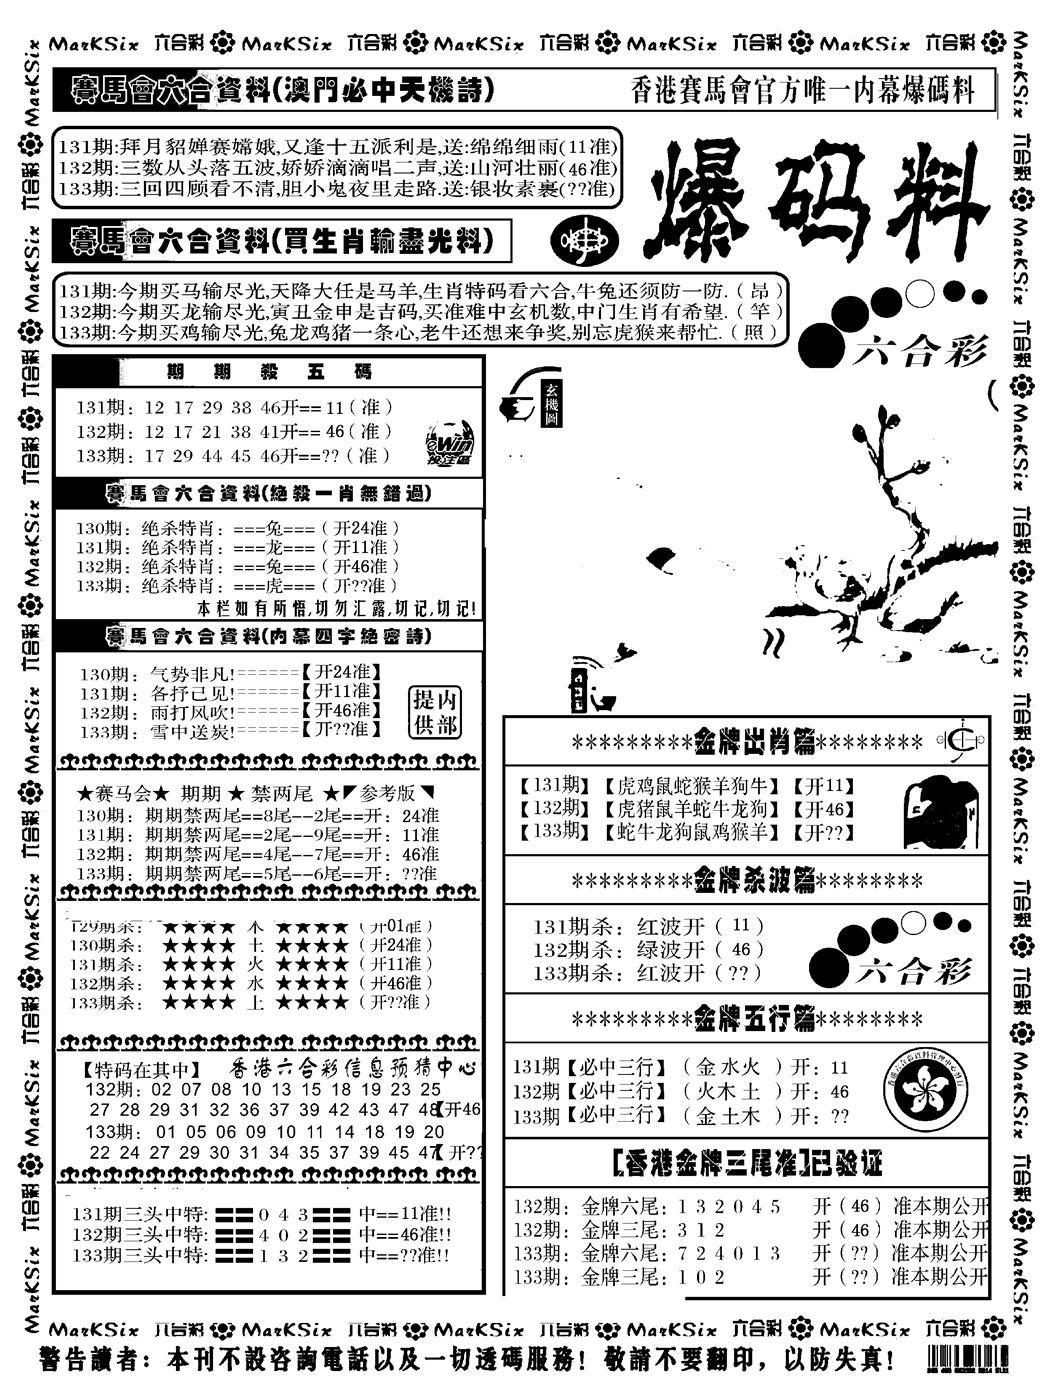 MarKSix 六合彩 MarKSix 六合彩 MarKSix 六合彩 MarKSix 六合彩 MarKSix 六合彩
賽馬會六合資料(澳門必中天機詩) 香港賽馬會官方唯一内幕爆碼料
131期:拜月貂婵赛嫦娥,又逢十五派利是,送:绵绵细雨(11准)
132期:三数从头落五波,娇娇滴滴唱二声,送:山河壮丽(46准)
133期:三回四顾看不清,胆小鬼夜里走路.送:银妆素裹(??准)
爆码料
賽馬會六合資料(買生肖輸盡光料)
131期:今期买马输尽光,天降大任是马羊,生肖特码看六合,牛兔还须防一防.(昂)
132期:今期买龙输尽光,寅丑金申是吉码,买准难中玄机数,中门生肖有希望.(竿)
133期:今期买鸡输尽光,兔龙鸡猪一条心,老牛还想来争奖,别忘虎猴来帮忙.(照)
六合彩
期期殺五碼
131期: 12 17 29 38 46开==11(准)
132期: 12 17 21 38 41开==46(准)
133期: 17 29 44 45 46开==??(准)
Win
投注區
玄機圖
賽馬會六合資料(絕殺一肖無錯過)
130期: 绝杀特肖: ===兔===(开24准)
131期: 绝杀特肖: ===龙===(开11准)
132期: 绝杀特肖: ===兔===(开46准)
133期: 绝杀特肖: ===虎===(开??准)
本栏如有所悟,切勿汇露,切记,切记!
賽馬會六合資料(内幕四字絕密詩)
130期: 气势非凡!======【开24准】
131期: 各抒己见!======【开11准】
132期: 雨打风吹!======【开46准】
133期: 雪中送炭!======【开??准】
提供内部
★赛马会★ 期期 ★ 禁两尾 ★◤参考版◥
130期: 期期禁两尾==8尾--2尾==开: 24准
131期: 期期禁两尾==2尾--9尾==开: 11准
132期: 期期禁两尾==4尾--7尾==开: 46准
133期: 期期禁两尾==5尾--6尾==开: ??准
129期杀: ★★★★ 木 ★★★★(开01准)
130期杀: ★★★★ 土 ★★★★(开24准)
131期杀: ★★★★ 火 ★★★★(开11准)
132期杀: ★★★★ 水 ★★★★(开46准)
133期杀: ★★★★ 土 ★★★★(开??准)
【特码在其中】 香港六合彩信息预猜中心
132期: 02 07 08 10 13 15 18 19 23 25
27 28 29 31 32 36 37 39 42 43 47 48【开46
133期: 01 05 06 09 10 11 14 18 19 20
22 24 27 29 30 31 34 35 37 39 45 47【开??
131期三头中特: 〓〓0 4 3〓〓 中==11准!!
132期三头中特: 〓〓4 0 2〓〓 中==46准!!
133期三头中特: 〓〓1 3 2〓〓 中==??准!!
*********金牌出肖篇********
【131期】【虎鸡鼠蛇猴羊狗牛】【开11】
【132期】【虎猪鼠羊蛇牛龙狗】【开46】
【133期】【蛇牛龙狗鼠鸡猴羊】【开??】
*********金牌杀波篇********
131期杀: 红波开(11)
132期杀: 绿波开(46)
133期杀: 红波开(??)
六合彩
*********金牌五行篇********
131期【必中三行】(金水火)开: 11
132期【必中三行】(火木土)开: 46
133期【必中三行】(金土木)开: ??
[香港金牌三尾准]已验证
132期: 金牌六尾: 1 3 2 0 4 5 开(46)准本期公开
132期: 金牌三尾: 3 1 2 开(46)准本期公开
133期: 金牌六尾: 7 2 4 0 1 3 开(??)准本期公开
133期: 金牌三尾: 1 0 2 开(??)准本期公开
MarKSix 六合彩 MarKSix 六合彩 MarKSix 六合彩 MarKSix 六合彩 MarKSix 六合彩
警告讀者: 本刊不設咨詢電話以及一切透碼服務! 敬請不要翻印, 以防失真!